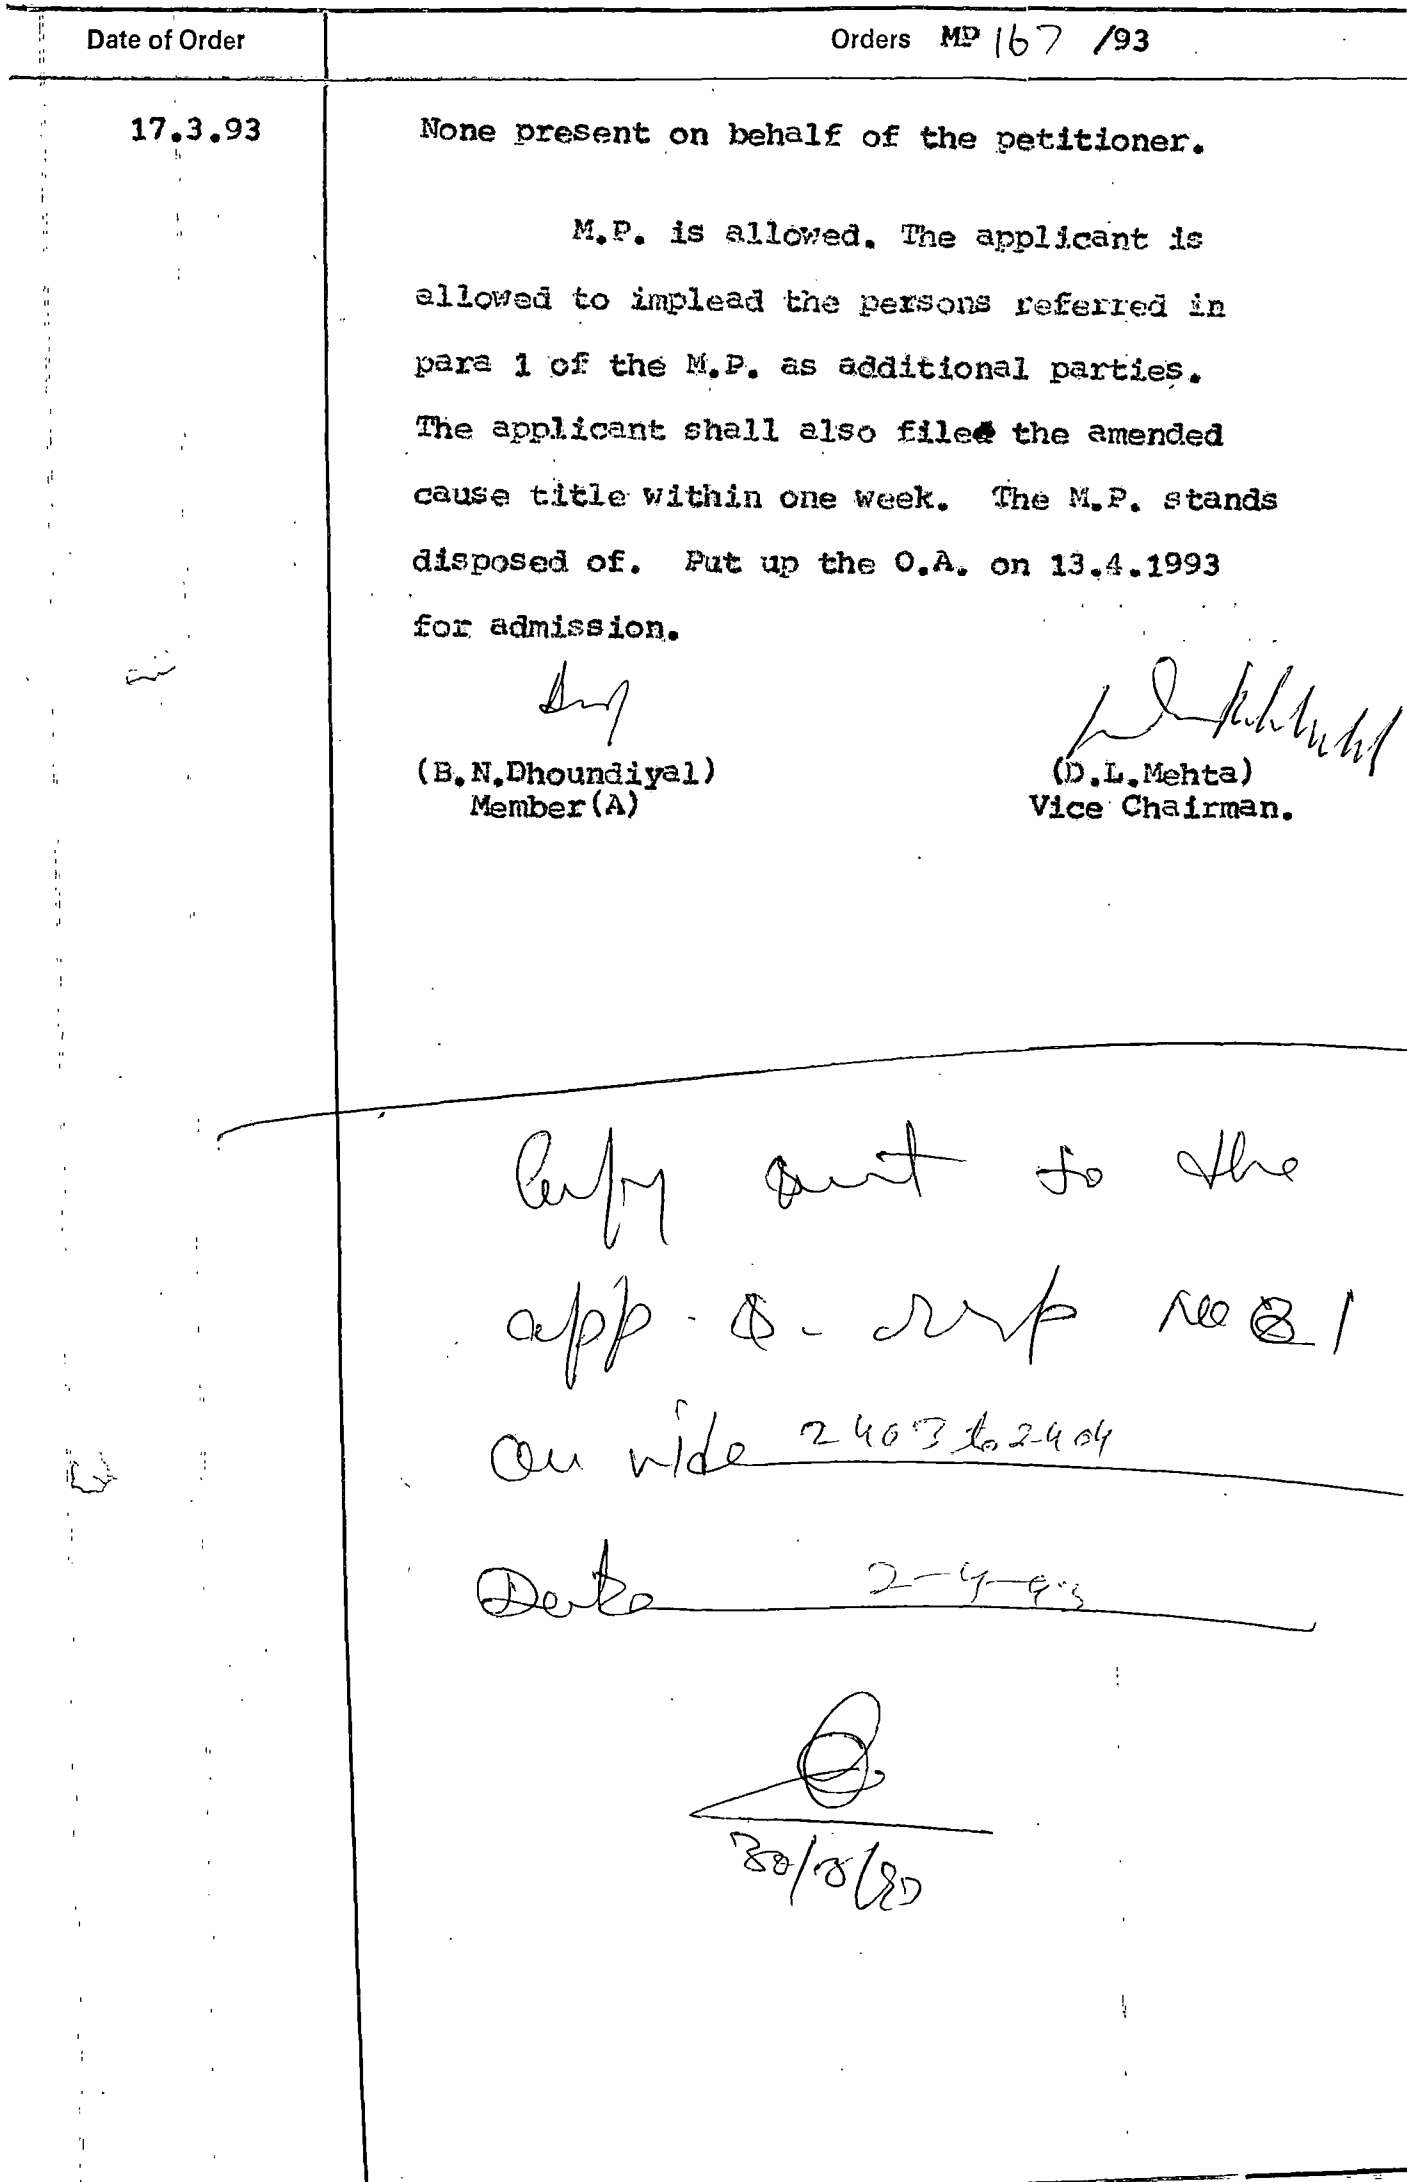 Date of Order
Orders MP 167 /93
17.3.93
None present on behalf of the petitioner.
M.P. is allowed. The applicant is
allowed to implead the persons referred in
para 1 of the M.P. as additional parties.
The applicant shall also file the amended
cause title within one week. The M.P. stands
disposed of. Put up the O.A. on 13.4.1993
for admission.
(B.N.Dhoundiyal)
Member(A)
(D.L.Mehta)
Vice Chairman.
Copy sent to the
app. & resp No 1
on vide 2403 to 2404
Date 2-4-93